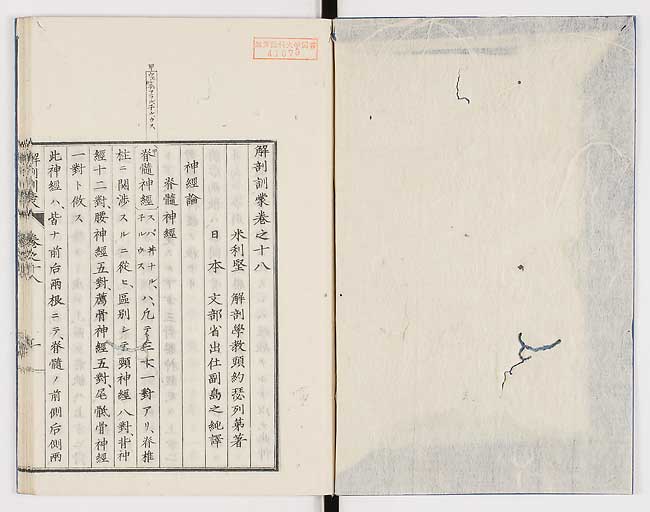 解剖訓蒙卷之十八
米利堅 解剖學教頭約瑟列第著
日本 文部省出仕副島之純譯
神經論
脊髓神經
脊髓神經 スパイナル、子ルウス ハ、凡テ三十一對アリ、脊椎
柱ニ關渉スルニ從ヒ、區別シテ頸神經八對、背神
經十二對、腰神經五對、薦骨神經五對、尾骶骨神經
一對ト做ス
此神經ハ、皆ナ前后兩根ニテ脊髓ノ前側后側兩
解剖訓蒙 卷之十八